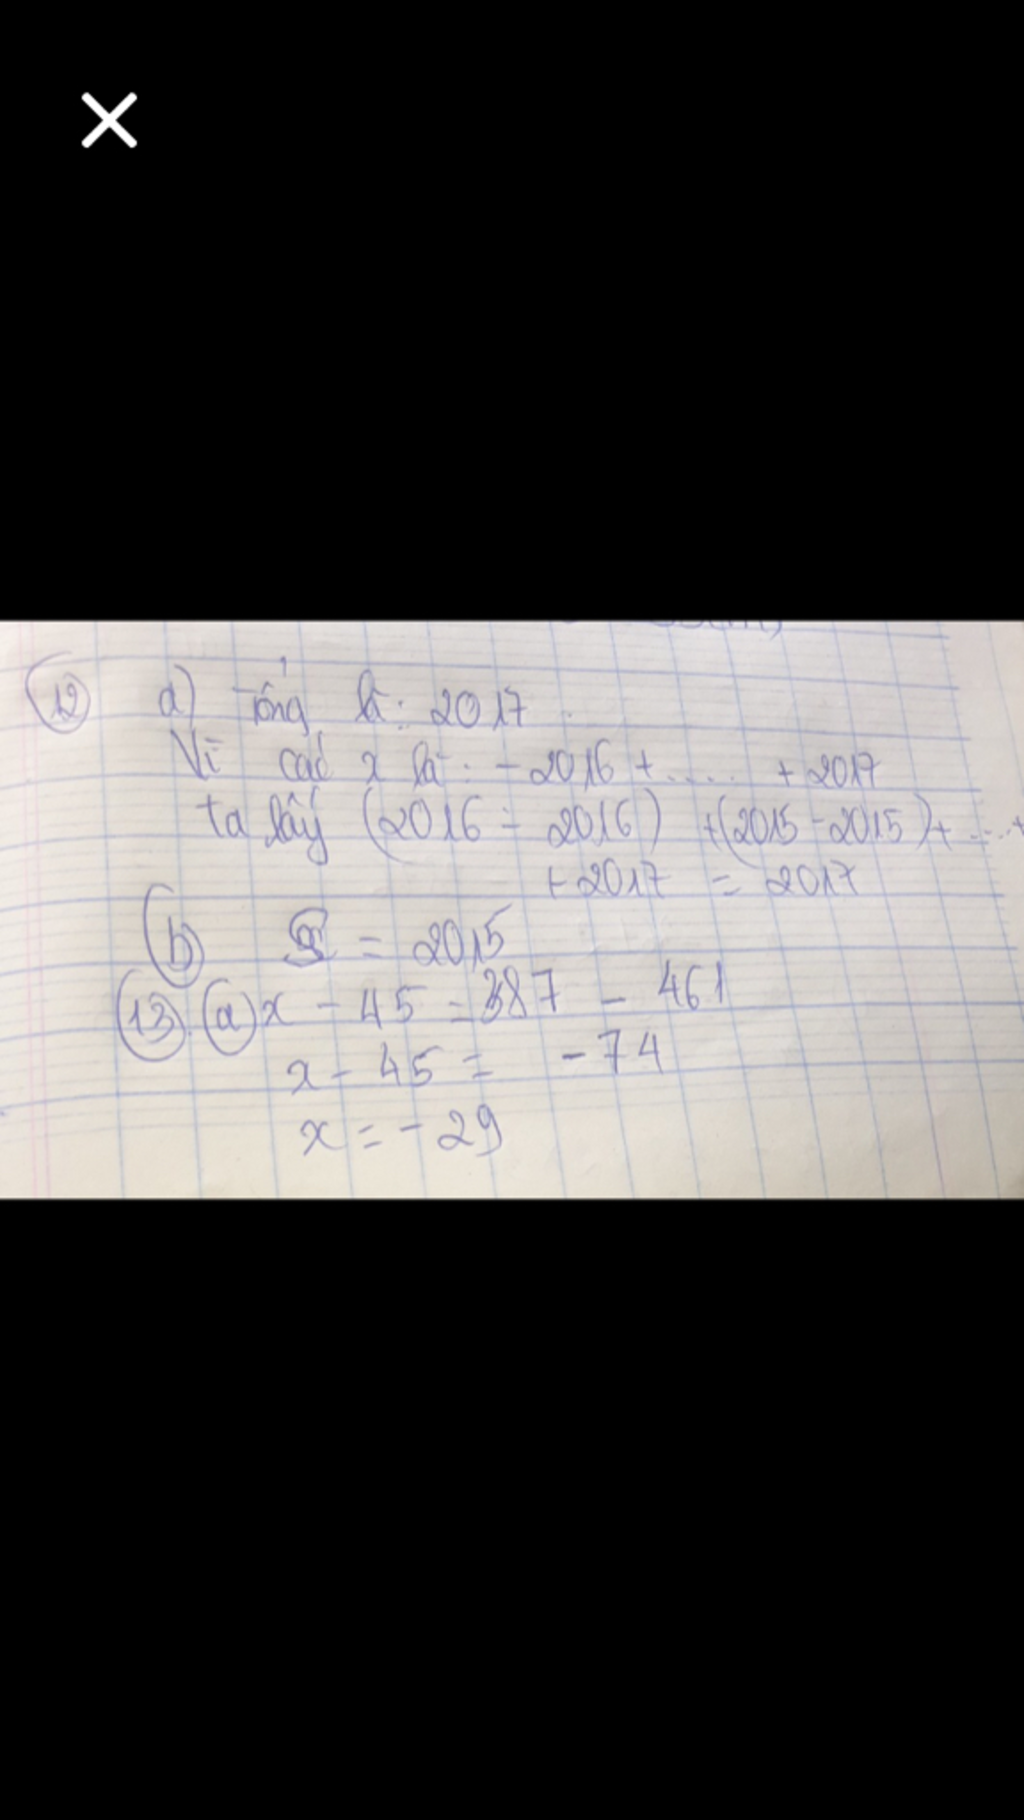 12 a) Tổng là: 2017.
Vì các x là: -2016 + ..... + 2017
ta lấy (2016 - 2016) + (2015 - 2015) + ...+
+ 2017 = 2017
b) S = 2015
13. a) x - 45 = 387 - 461
x - 45 = -74
x = -29